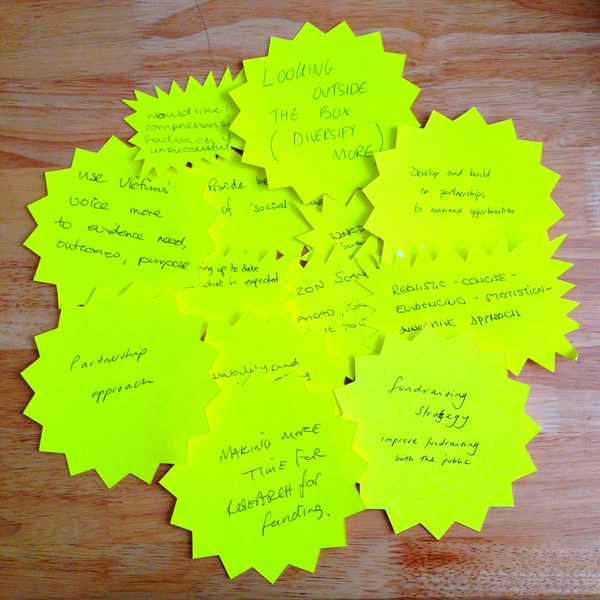 LOOKING
OUTSIDE
THE BOX
( DIVERSIFY
MORE )
would like
feedback if
unsuccessful
Use Victims'
voice more
to evidence need,
outcomes, purpose
Provide
of 'social
Develop and build
on partnerships
to maximise opportunities
ing up to date
what is expected
ZON SCAN
AHEAD
REALISTIC - CONCISE -
EVIDENCING - STATISTICAL -
APPROACH
Partnership
approach
and
fundraising
strategy
improve fundraising
with the public
MAKING MORE
TIME FOR
RESEARCH for
funding.